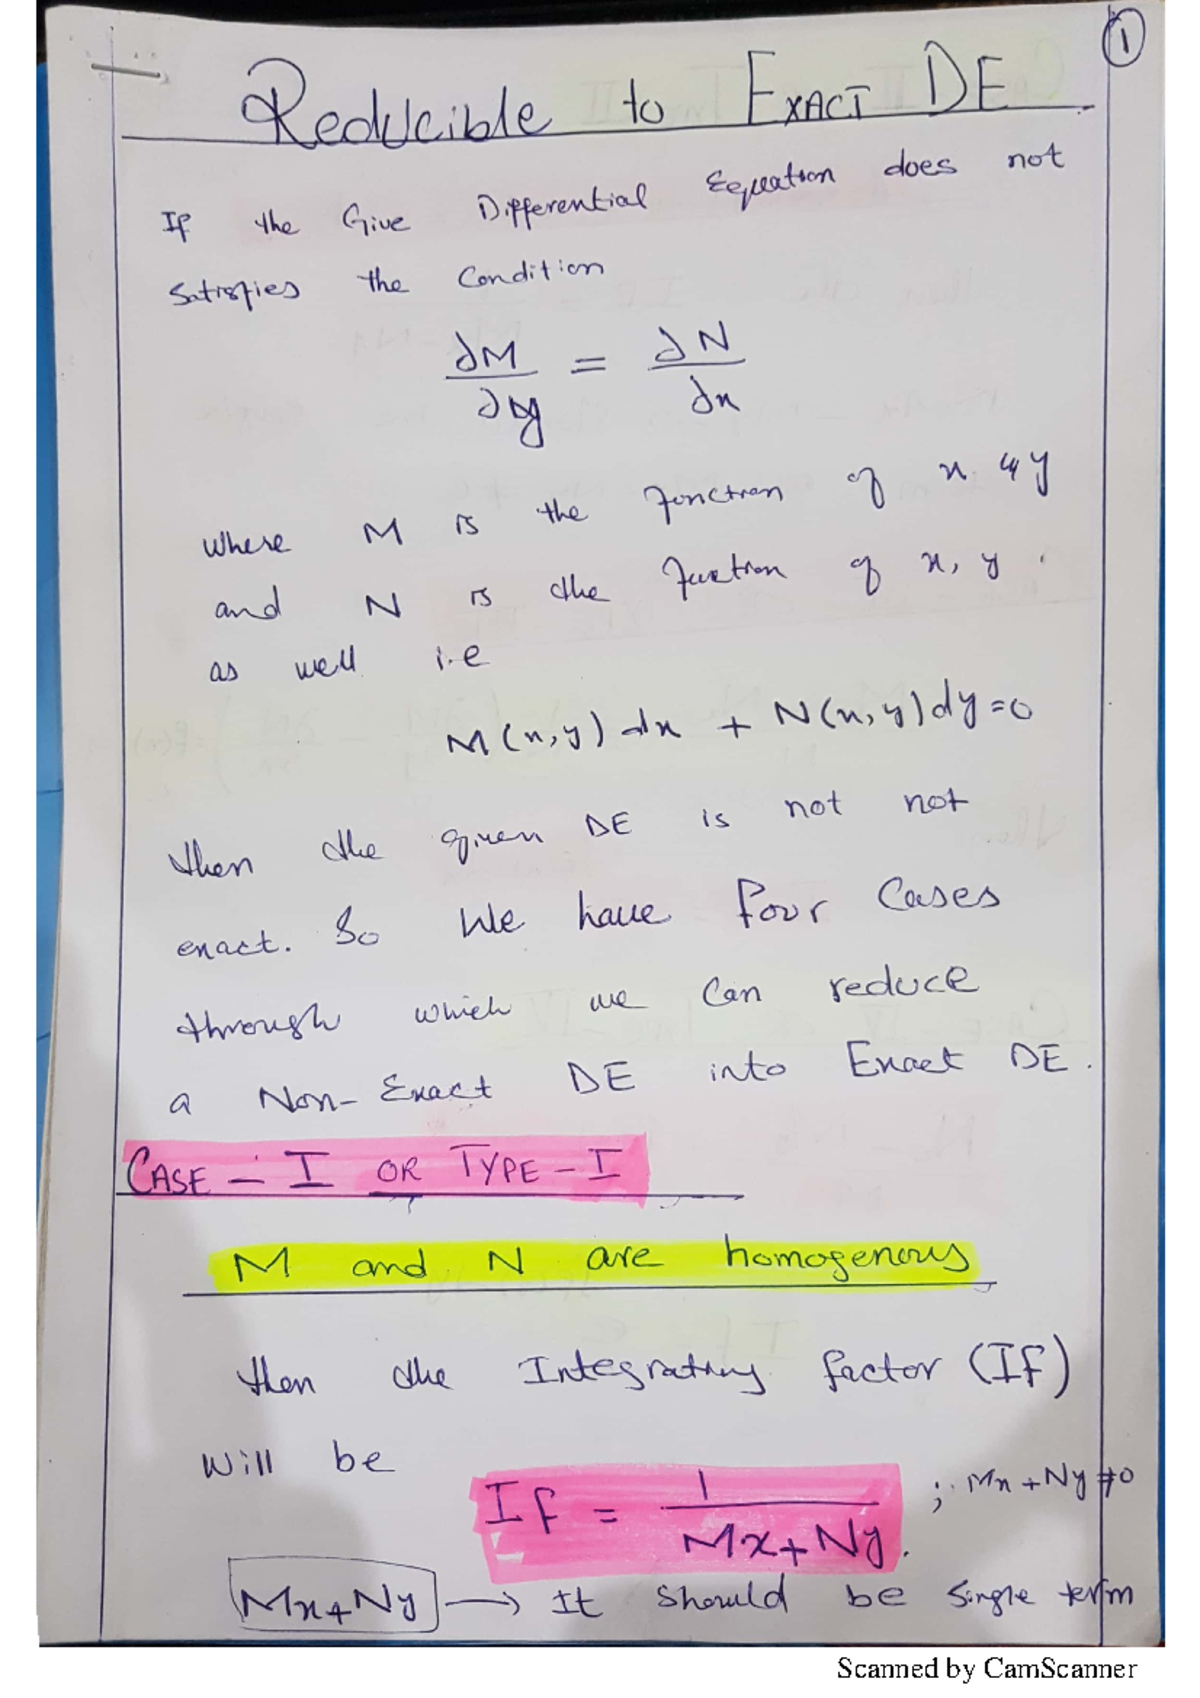 1
Reducible to EXACT DE
If the Give Differential Equation does not
Satisfies the Condition
∂M/∂y = ∂N/∂x
where M is the function of x & y
and N is the function of x, y.
as well i.e
M(x,y)dx + N(x,y)dy=0
then the given DE is not not
exact. So We have four Cases
through which we Can reduce
a Non-Exact DE into Exact DE.
CASE - I OR TYPE - I
M and N are homogenous
then the Integrating factor (IF)
Will be
IF = 1/Mx+Ny. ; Mx+Ny≠0
Mx+Ny → It should be Single term
Scanned by CamScanner